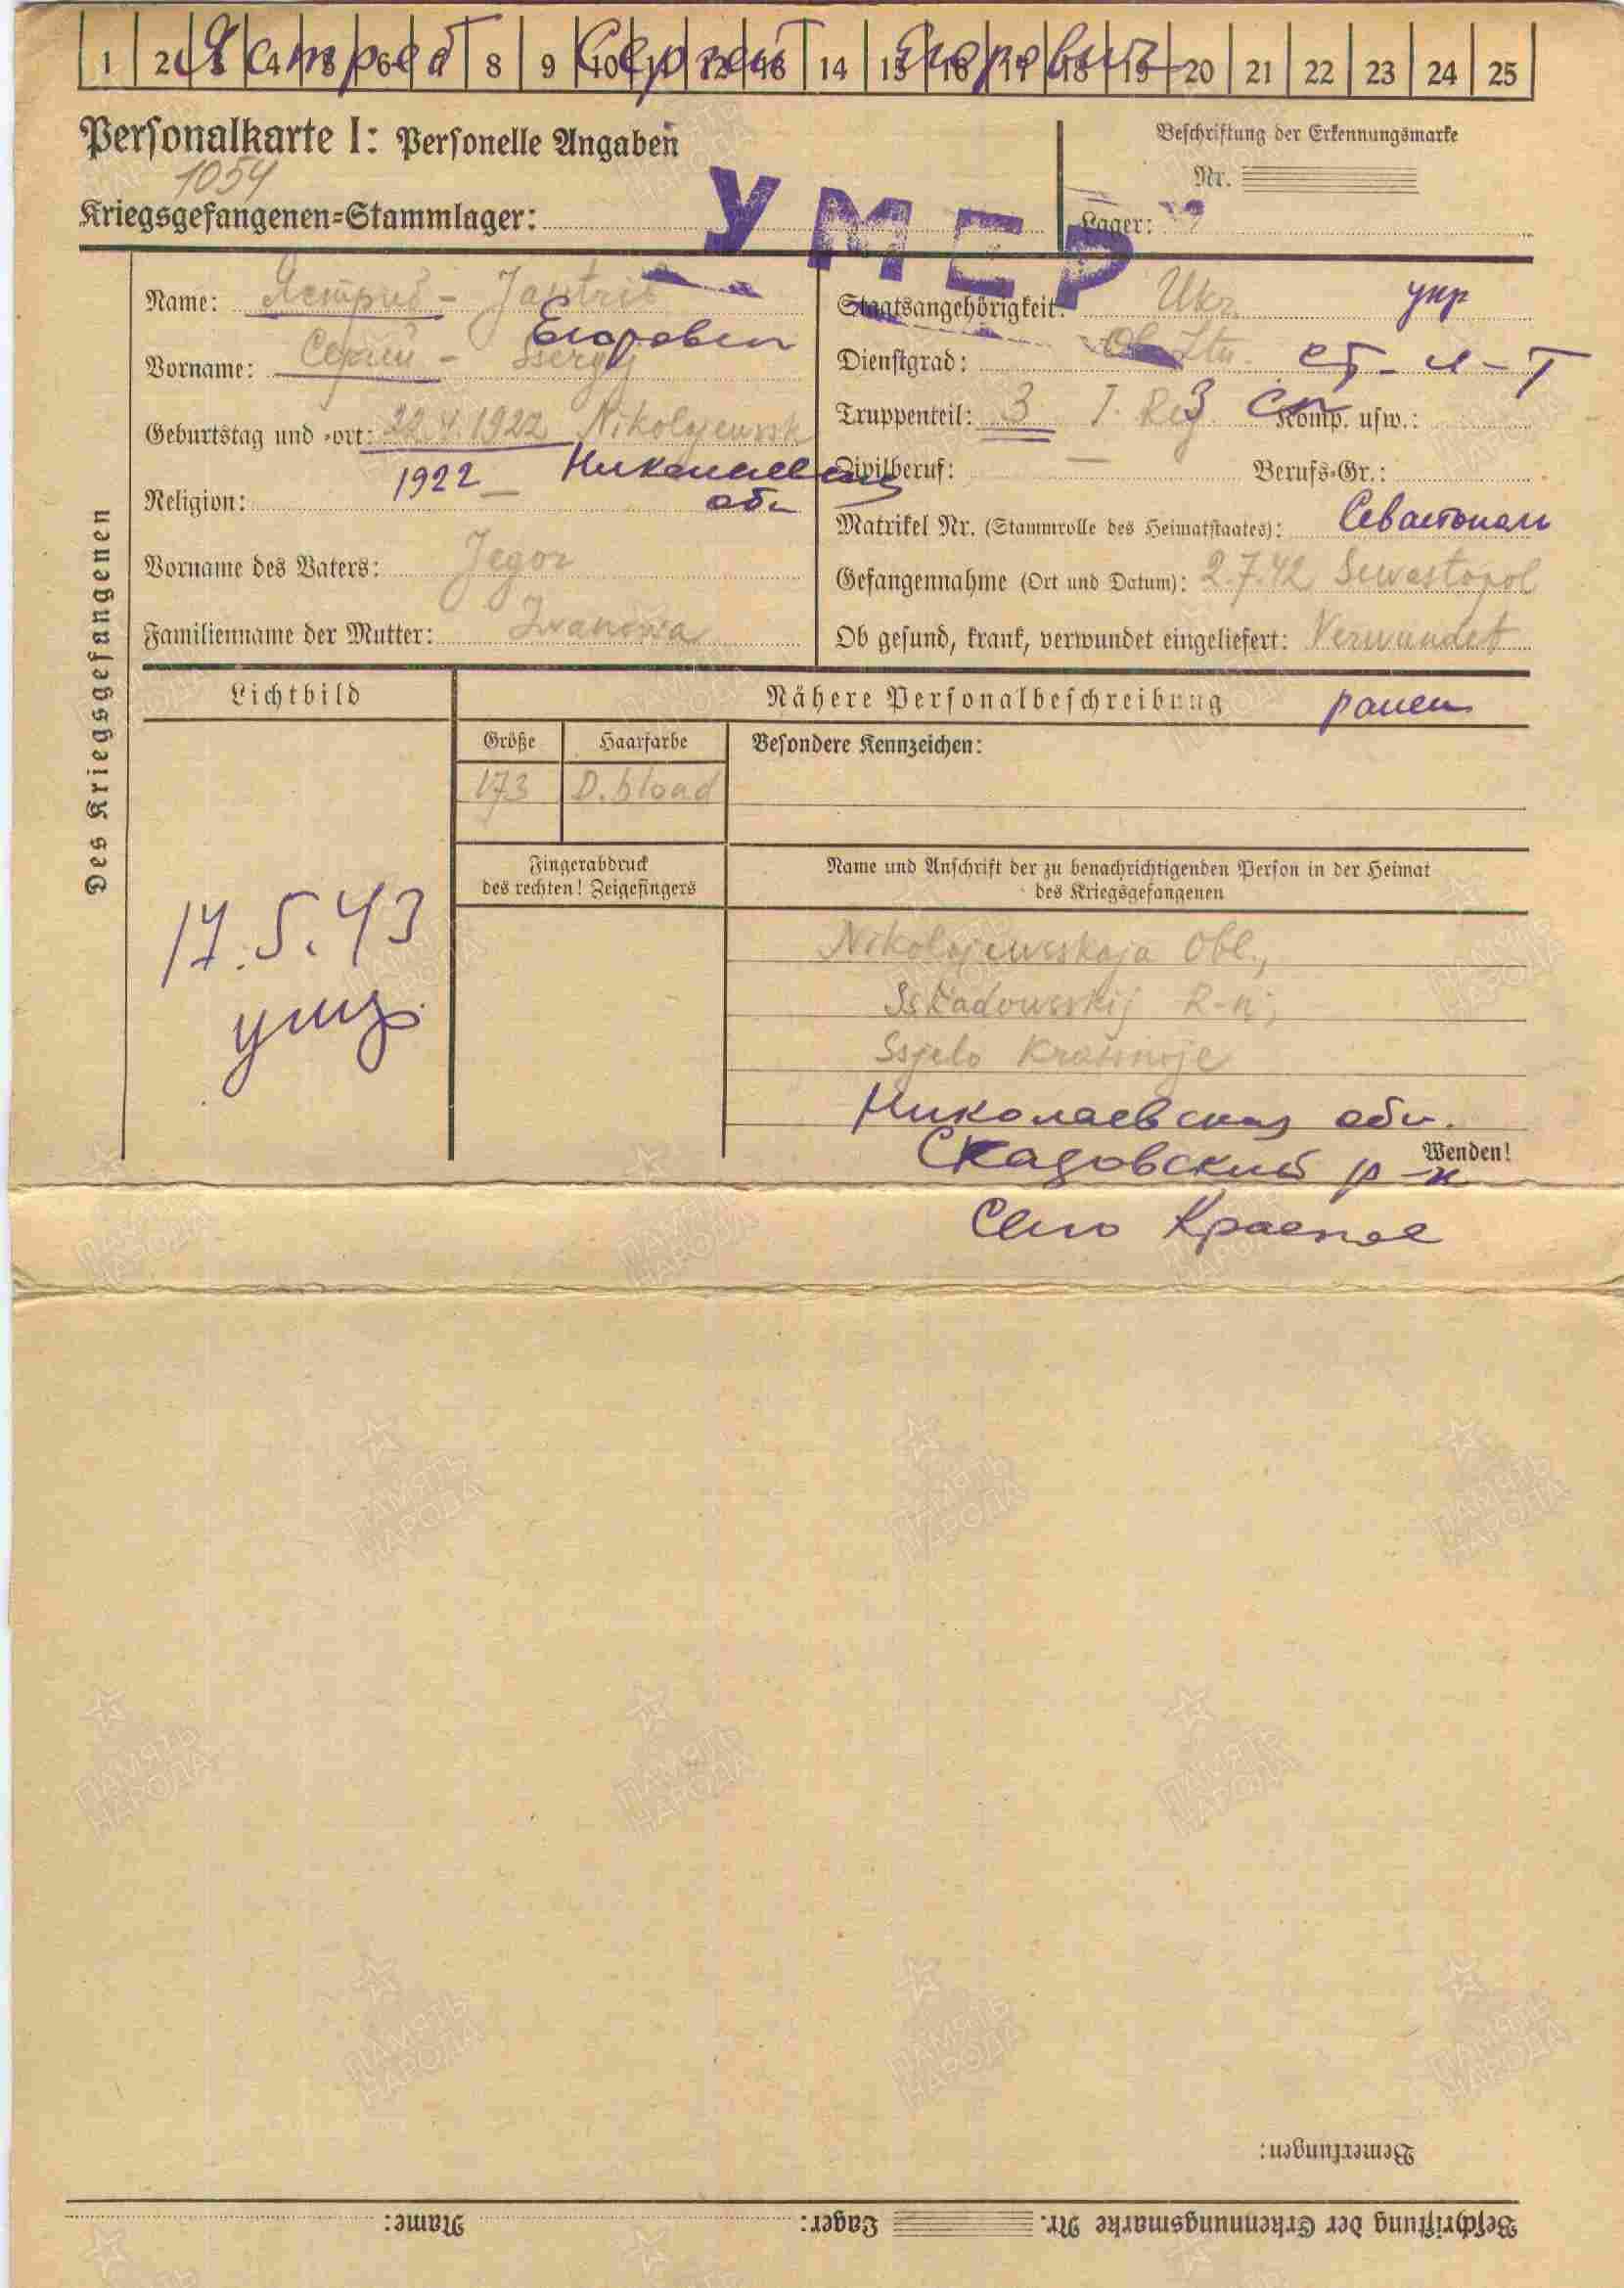 1 2 3 4 5 6 7 8 9 10 11 12 13 14 15 16 17 18 19 20 21 22 23 24 25
Ястреб Сергей Егорович
Personalkarte I: Personelle Angaben
1054
Kriegsgefangenen-Stammlager:
Beschriftung der Erkennungsmarke
Nr.
Lager:
УМЕР
Des Kriegsgefangenen
Name: Ястриб - Jastrib
Егорович
Vorname: Сергей - Ssergej
Geburtstag und -ort: 22.4.1922 Nikolajewsk
1922 Николаевская
обл
Religion: —
Vorname des Vaters: Jegor
Familienname der Mutter: Iwanowa
Staatsangehörigkeit: Ukr. укр
Dienstgrad: Ob. Ltn. ст-л-т
Truppenteil: 3 I. Reg. 3 сп Komp. usw.:
Zivilberuf: — Berufs-Gr.:
Matrikel Nr. (Stammrolle des Heimatstaates): Севастополь
Gefangennahme (Ort und Datum): 2.7.42 Sewastopol
Ob gesund, krank, verwundet eingeliefert: Verwundet
ранен
Lichtbild
Nähere Personalbeschreibung
Größe Haarfarbe Besondere Kennzeichen:
173 D. blond
Fingerabdruck
des rechten! Zeigefingers
Name und Anschrift der zu benachrichtigenden Person in der Heimat
des Kriegsgefangenen
17.5.43
Nikolajewsskaja Obl.,
Sskadowsskij R-n,
Ssjelo Krassnoje
Николаевская обл.
Скадовский р-н
Село Красное
Wenden!
Bemerkungen:
Beschriftung der Erkennungsmarke Nr. Lager: Name:
ПАМЯТЬ НАРОДА